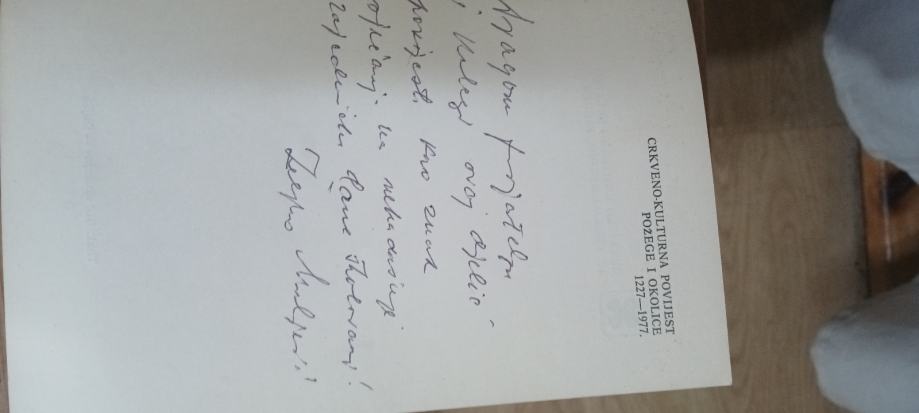 CRKVENO-KULTURNA POVIJEST
POŽEGE I OKOLICE
1227—1977.
Dragom prijatelju
i kolegi ovaj djelić
povijesti kao znak
sjećanja na nekadašnje
zajedničke dane školovanja!